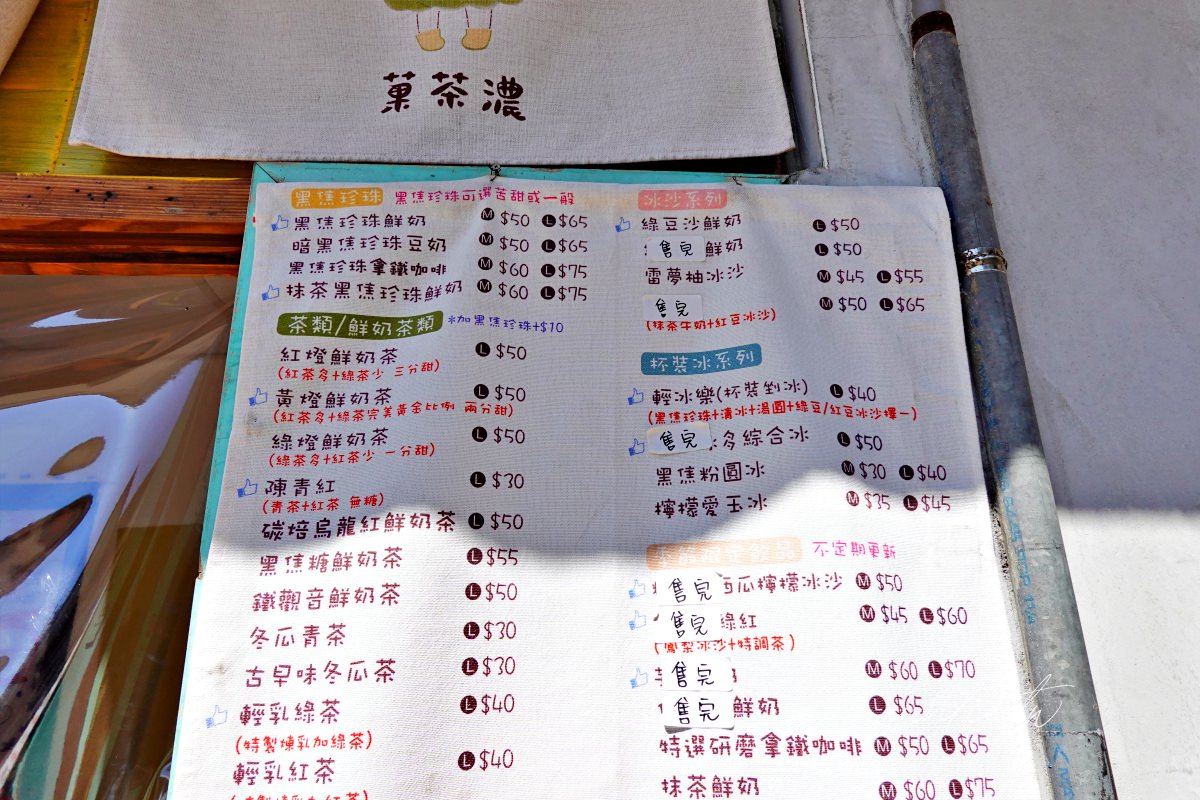 菓茶濃
黑焦珍珠 黑焦珍珠可選苦甜或一般
黑焦珍珠鮮奶 M $50 L $65
暗黑焦珍珠豆奶 M $50 L $65
黑焦珍珠拿鐵咖啡 M $60 L $75
抹茶黑焦珍珠鮮奶 M $60 L $75
茶類/鮮奶茶類 *加黑焦珍珠+$10
紅燈鮮奶茶 L $50
(紅茶多+綠茶少 三分甜)
黃燈鮮奶茶 L $50
(紅茶多+綠茶完美黃金比例 兩分甜)
綠燈鮮奶茶 L $50
(綠茶多+紅茶少 一分甜)
陳青紅 L $30
(青茶+紅茶 無糖)
碳焙烏龍紅鮮奶茶 L $50
黑焦糖鮮奶茶 L $55
鐵觀音鮮奶茶 L $50
冬瓜青茶 L $30
古早味冬瓜茶 L $30
輕乳綠茶 L $40
(特製煉乳加綠茶)
輕乳紅茶 L $40
冰沙系列
綠豆沙鮮奶 L $50
售完 鮮奶 L $50
雷夢柚冰沙 M $45 L $55
售完 M $50 L $65
(抹茶牛奶+紅豆冰沙)
杯裝冰系列
輕冰樂(杯裝剉冰) L $40
(黑焦珍珠+清冰+湯圓+綠豆/紅豆冰沙擇一)
售完 多綜合冰 L $50
黑焦粉圓冰 M $30 L $40
檸檬愛玉冰 M $35 L $45
品 不定期更新
售完 瓜檸檬冰沙 M $50
售完 綠紅 M $45 L $60
(鳳梨冰沙+特調茶)
售完 M $60 L $70
售完 鮮奶 L $65
特選研磨拿鐵咖啡 M $50 L $65
抹茶鮮奶 M $60 L $75